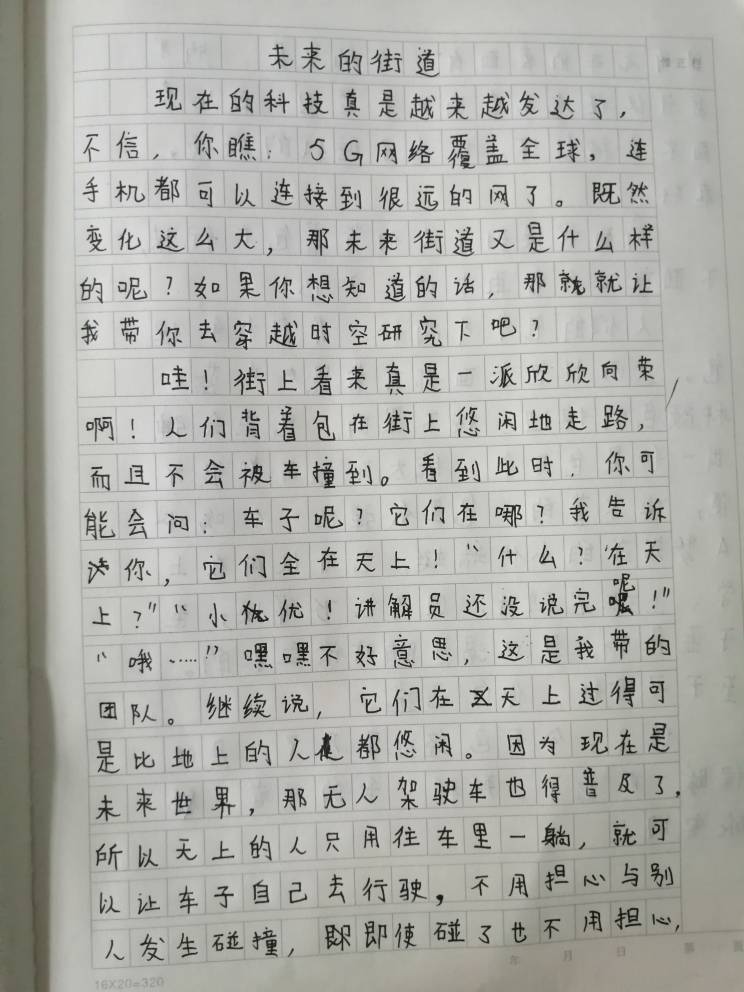 未来的街道
现在的科技真是越来越发达了，
不信，你瞧：5G网络覆盖全球，连
手机都可以连接到很远的网了。既然
变化这么大，那未来街道又是什么样
的呢？如果你想知道的话，那就就让
我带你去穿越时空研究下吧？
哇！街上看来真是一派欣欣向荣
啊！人们背着包在街上悠闲地走路，
而且不会被车撞到。看到此时，你可
能会问：车子呢？它们在哪？我告诉
你，它们全在天上！“什么？在天
上？”“小优！讲解员还没说完呢！”
“哦……”嘿嘿不好意思，这是我带的
团队。继续说，它们在天上过得可
是比地上的人都悠闲。因为现在是
未来世界，那无人驾驶车也得普及了，
所以天上的人只用往车里一躺，就可
以让车子自己去行驶，不用担心与别
人发生碰撞，即使碰了也不用担心，
年 月 日 第 页
16X20=320